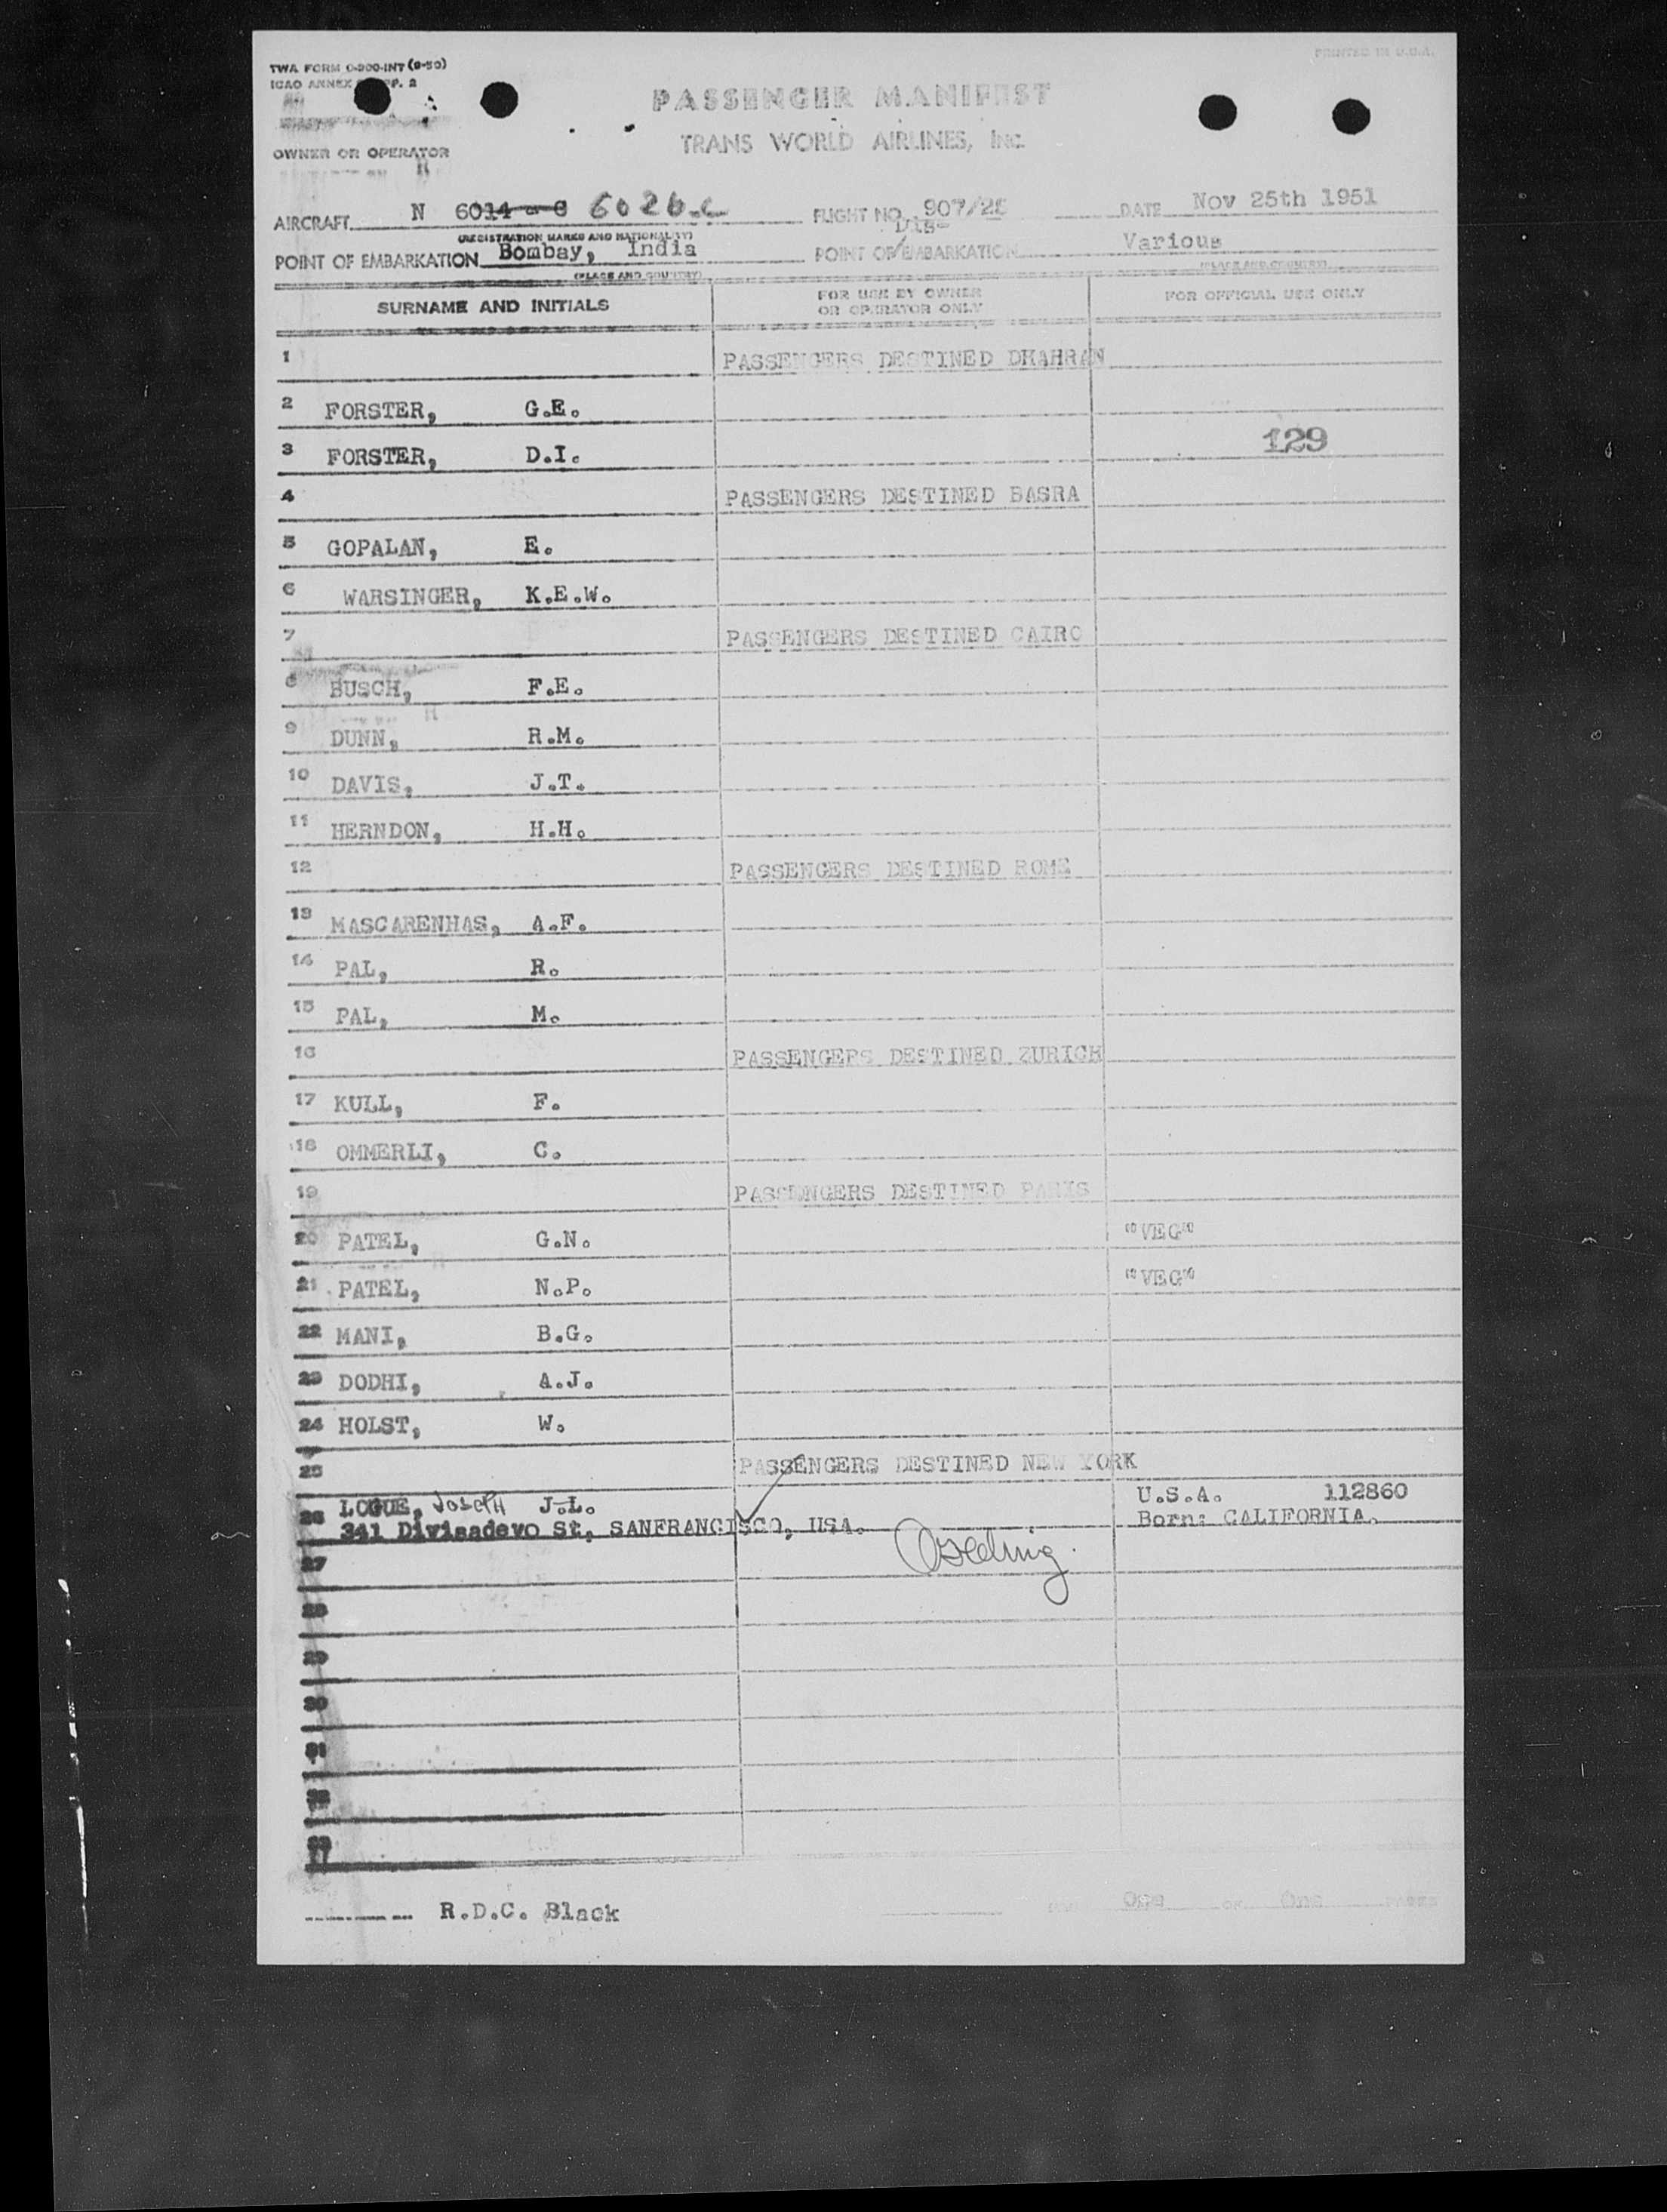 PRINTED IN U.S.A.
TWA FORM O-900-INT (9-50)
ICAO ANNEX
PASSENGER MANIFEST
TRANS WORLD AIRLINES, INC.
OWNER OR OPERATOR
AIRCRAFT N 6014-C 6026-C FLIGHT NO. 907/25 DATE Nov 25th 1951
(REGISTRATION MARKS AND NATIONALITY)
DIS-
POINT OF EMBARKATION Bombay, India POINT OF/EMBARKATION Various
(PLACE AND COUNTRY) (PLACE AND COUNTRY)
SURNAME AND INITIALS FOR USE BY OWNER OR OPERATOR ONLY FOR OFFICIAL USE ONLY
1 PASSENGERS DESTINED DHAHRAN
2 FORSTER, G.E.
3 FORSTER, D.I. 129
4 PASSENGERS DESTINED BASRA
5 GOPALAN, E.
6 WARSINGER, K.E.W.
7 PASSENGERS DESTINED CAIRO
8 BUSCH, F.E.
9 DUNN, R.M.
10 DAVIS, J.T.
11 HERNDON, H.H.
12 PASSENGERS DESTINED ROME
13 MASCARENHAS, A.F.
14 PAL, R.
15 PAL, M.
16 PASSENGERS DESTINED ZURICH
17 KULL, F.
18 OMMERLI, C.
19 PASSENGERS DESTINED PARIS
20 PATEL, G.N. "VEG"
21 PATEL, N.P. "VEG"
22 MANI, B.G.
23 DODHI, A.J.
24 HOLST, W.
25 PASSENGERS DESTINED NEW YORK
26 LOGUE, Joseph J.L. U.S.A. 112860
341 Divisadevo St, SANFRANCISCO, USA. Born: CALIFORNIA.
27
28
29
30
31
32
33
R.D.C. Black One OF One PAGES